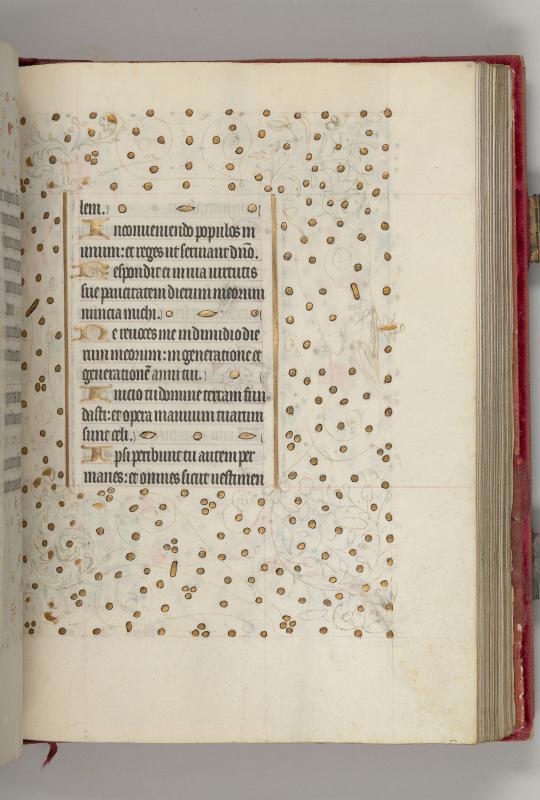 lem.
In conveniendo populos in
unum: et reges ut serviant dño.
Respondit ei in via virtutis
sue paucitatem dierum meorum
nuncia michi.
Ne revoces me in dimidio die
rum meorum: in generatione et
generationē anni tui.
Inicio tu domine terram fun
dasti: et opera manuum tuarum
sunt celi.
Ipsi peribunt tu autem per
manes: et omnes sicut vestimen